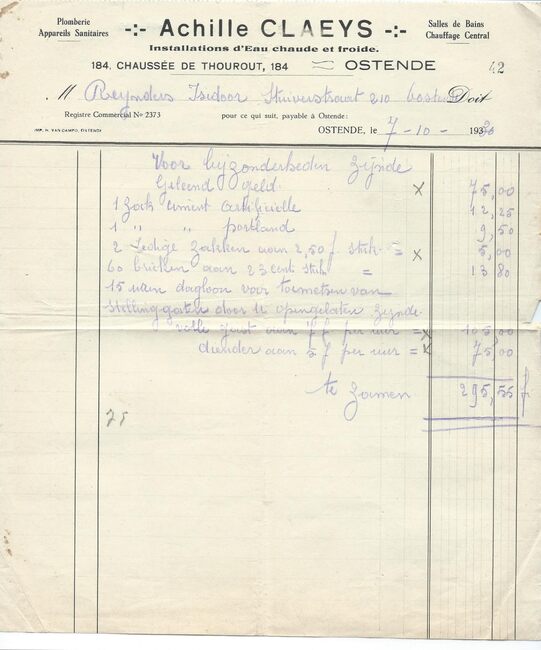 Plomberie
Appareils Sanitaires
Achille CLAEYS
Salles de Bains
Chauffage Central
Installations d'Eau chaude et froide.
184, CHAUSSÉE DE THOUROUT, 184 OSTENDE
42
M Reynders Isidoor Stuiverstraat 210 Oostende Doit
Registre Commercial Nº 2373 pour ce qui suit, payable à Ostende:
IMP. H. VAN CAMPO, OSTENDE OSTENDE, le 7-10- 193
Voor bijzonderheden zijnde
Geleend geld. x 75,00
1 Zack ciment artificielle 12,25
1 " " portland 9,50
2 Ledige Zakken aan 2,50 f. stuk = x 5,00
60 bricken aan 23 cent stuk = 13 80
15 uren dagloon voor toemetsen van
stellinggaten door U opengelaten zijnde
volle gast aan 7 f per uur = x 105,00
diender aan 5 f per uur = x 75,00
te zamen 295,55 f
75